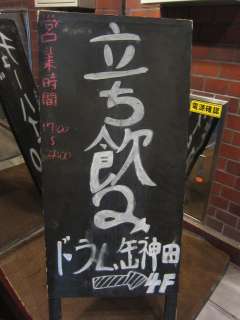 営業時間
17:00
立ち飲み
ドラム缶神田
4F
電源確認